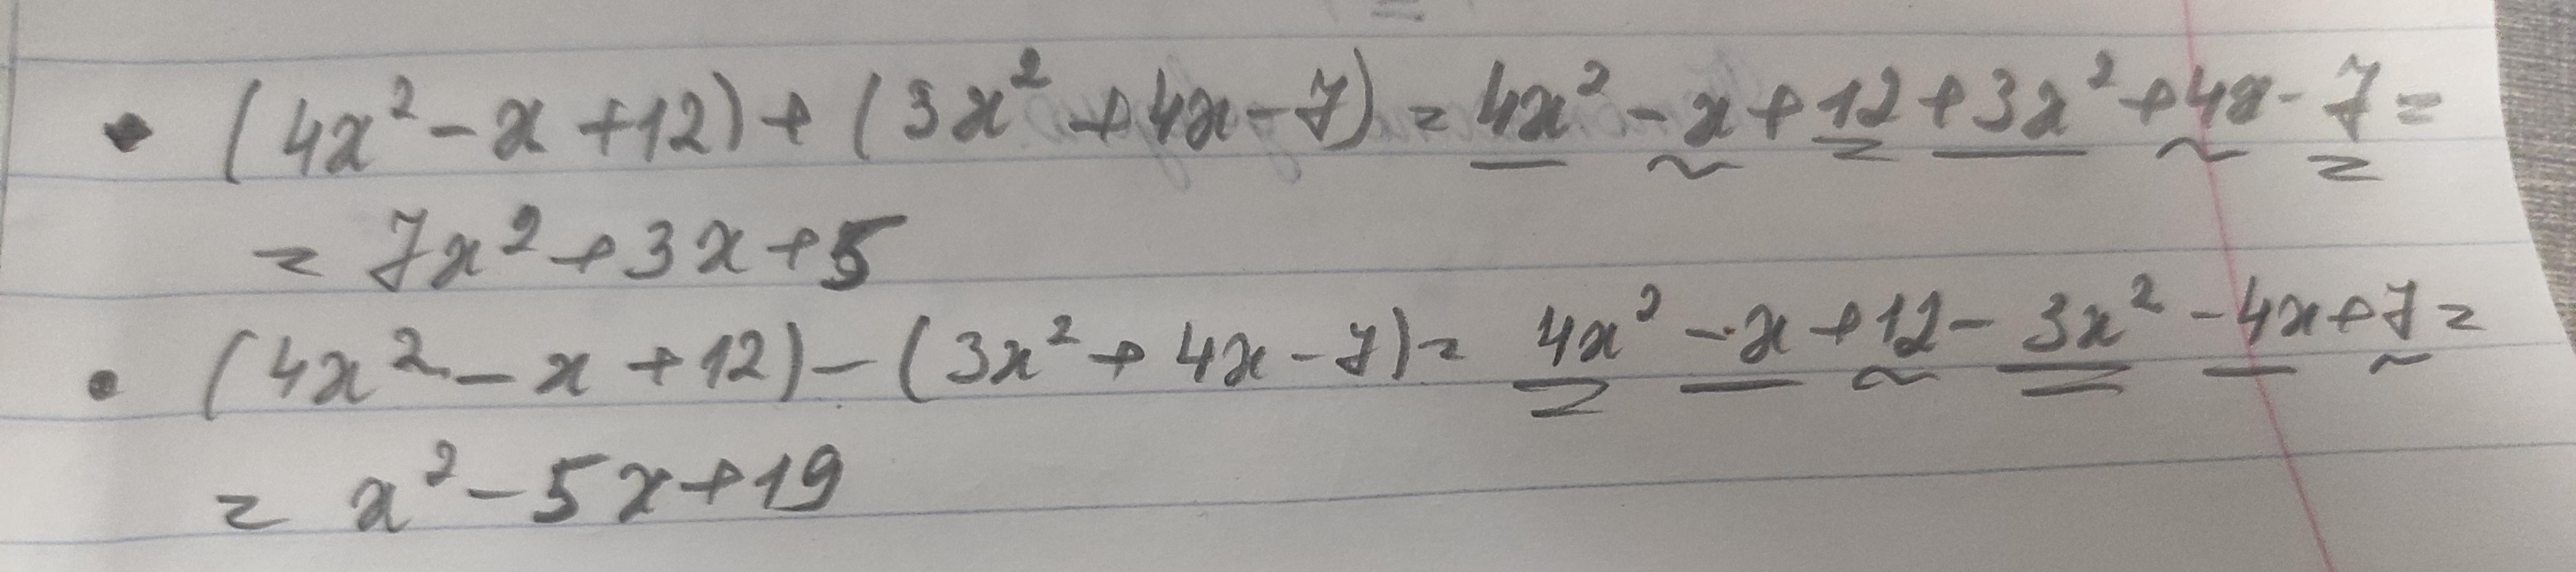 • (4x² - x + 12) + (3x² + 4x - 7) = 4x² - x + 12 + 3x² + 4x - 7 =
= 7x² + 3x + 5
• (4x² - x + 12) - (3x² + 4x - 7) = 4x² - x + 12 - 3x² - 4x + 7 =
= x² - 5x + 19